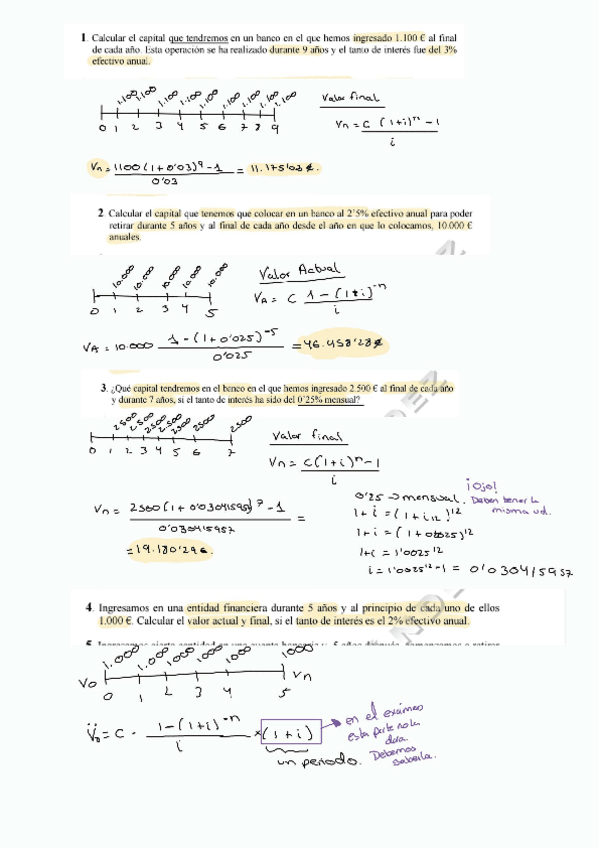 1. Calcular el capital que tendremos en un banco en el que hemos ingresado 1.100 € al final
de cada año. Esta operación se ha realizado durante 9 años y el tanto de interés fue del 3%
efectivo anual.
1.100 1.100 1.100 1.100 1.100 1.100 1.100 1.100 1.100
0 1 2 3 4 5 6 7 8 9
Valor final
Vn = C (1+i)ⁿ - 1
i
Vn = 1100 (1 + 0'03)⁹ - 1 = 11.175'03 €.
0'03
2 Calcular el capital que tenemos que colocar en un banco al 2´5% efectivo anual para poder
retirar durante 5 años y al final de cada año desde el año en que lo colocamos, 10.000 €
anuales.
10.000 10.000 10.000 10.000 10.000
0 1 2 3 4 5
Valor Actual
VA = C 1 - (1+i)⁻ⁿ
i
VA = 10.000 1 - (1 + 0'025)⁻⁵ = 46.458'28 €
0'025
3. ¿Qué capital tendremos en el banco en el que hemos ingresado 2.500 € al final de cada año
y durante 7 años, si el tanto de interés ha sido del 0´25% mensual?
2500 2500 2500 2500 2500 2500 2500
0 1 2 3 4 5 6 7
Valor final
Vn = C(1+i)ⁿ - 1
i
Vn = 2500 (1 + 0'030415957)⁷ - 1 =
0'030415957
= 19.180'296.
0'25 → mensual.
¡Ojo!
Deben tener la
misma ud.
1+i = (1 + i₁₂)¹²
1+i = (1 + 0'0025)¹²
1+i = 1'0025¹²
i = 1'0025¹² - 1 = 0'030415957
4. Ingresamos en una entidad financiera durante 5 años y al principio de cada uno de ellos
1.000 €. Calcular el valor actual y final, si el tanto de interés es el 2% efectivo anual.
1.000 1.000 1000 1000 1000 1000
V0 Vn
0 1 2 3 4 5
V̈0 = C · 1 - (1+i)⁻ⁿ × (1+i)
i
un periodo.
→ en el exámen
esta parte no la
dará.
Debemos
saberla.